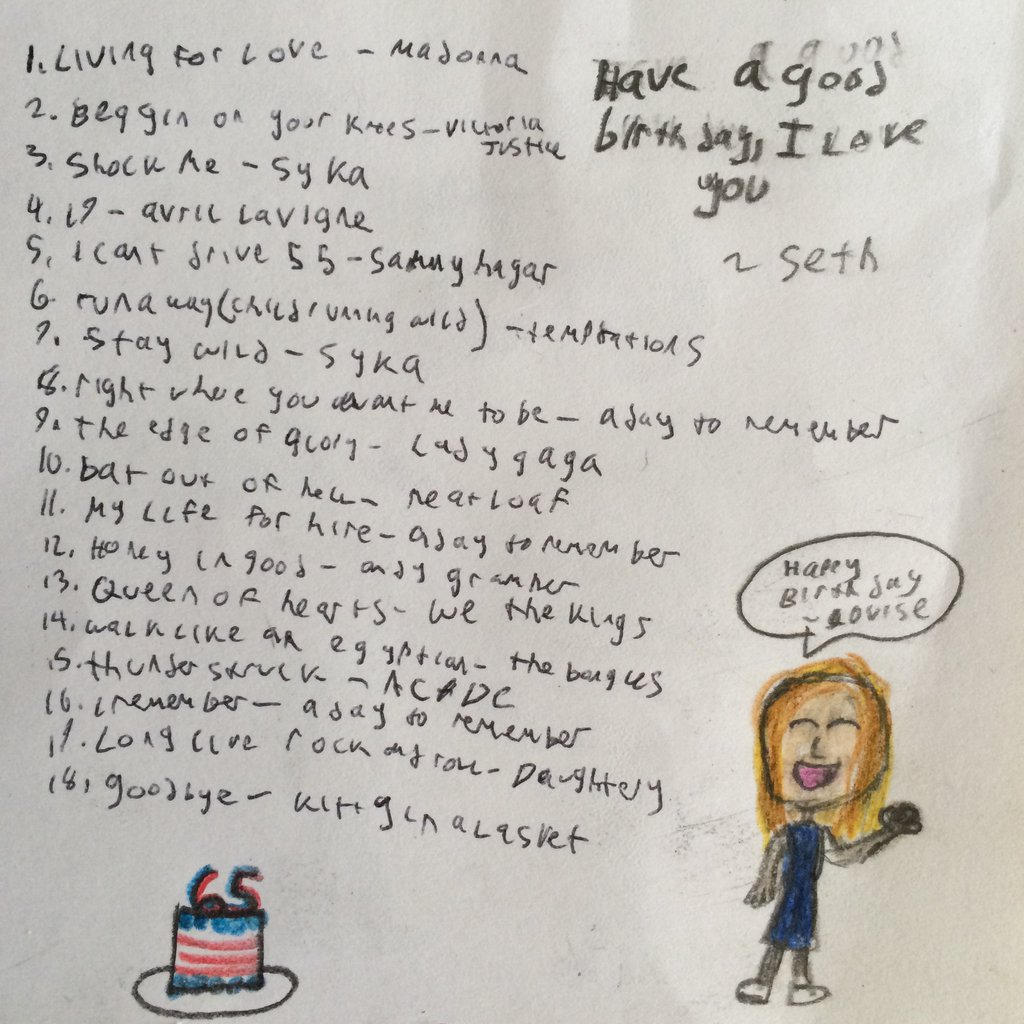 1. Living for Love - Madonna
2. Beggin on your knees - Victoria
Justice
3. Shock Me - Syka
4. 17 - avril lavigne
5. I cant drive 55 - Sammy hagar
6. runaway (child running wild) - temptations
7. Stay wild - Syka
8. right where you want me to be - a day to remember
9. the edge of glory - Lady gaga
10. bat out of hell - meatloaf
11. My Life for hire - a day to remember
12. Honey im good - andy grammer
13. Queen of hearts - we the kings
14. walk like an egyptian - the bangles
15. thunderstruck - AC/DC
16. i remember - a day to remember
17. Long live rock and roll - Daughtery
18. goodbye - Kittgin alasket
Have a good
birthday, I Love
you
~ Seth
Happy
Birthday
~ Lovise
65